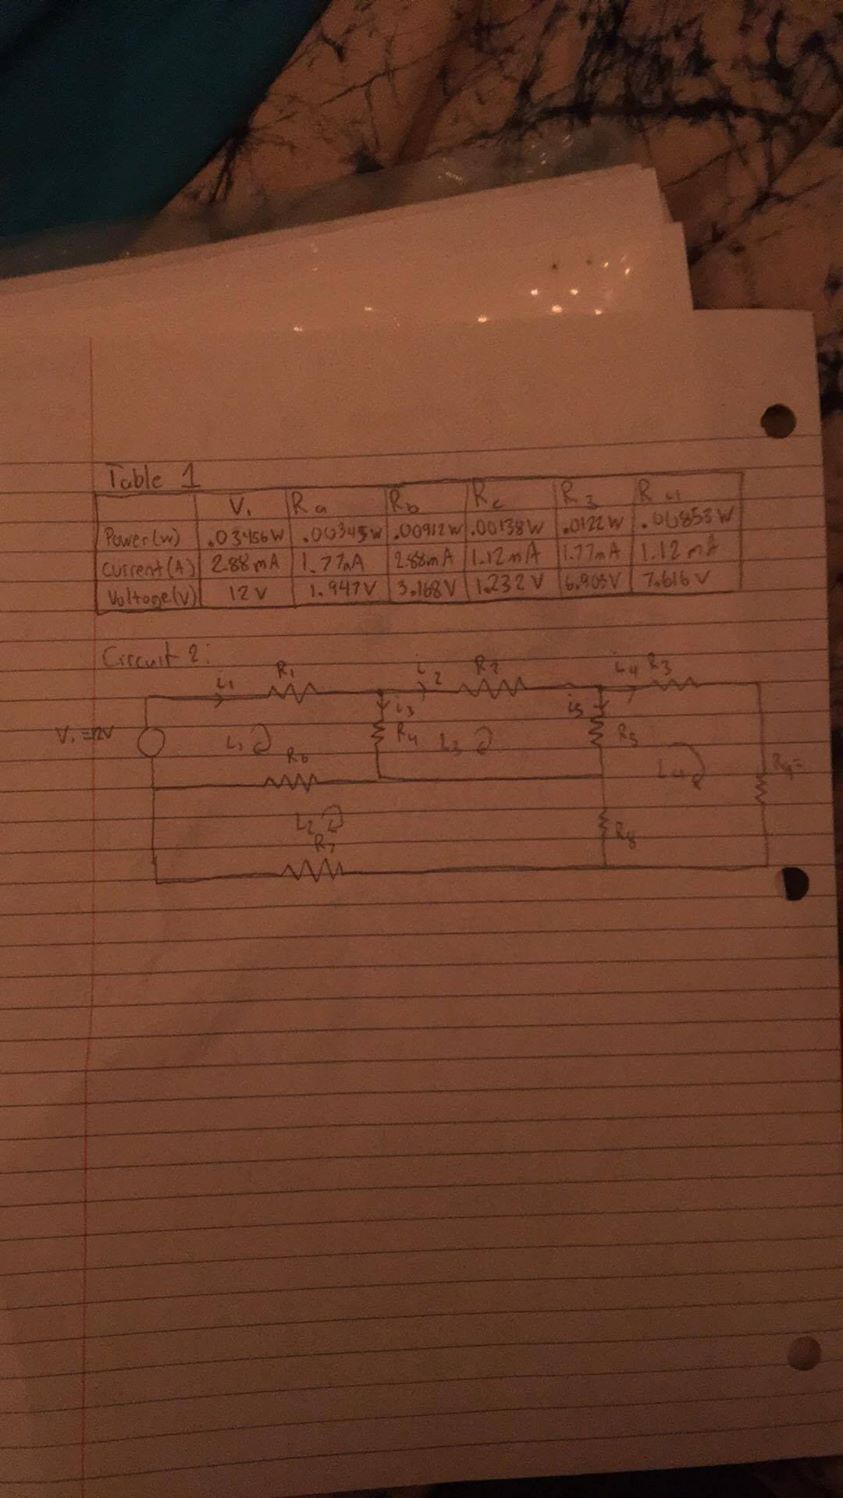 Table 1
V₁ Ra Rb Rc R3 R4
Power(w) .03456W .00345W .00912W .00138W .0122W .00853W
Current(A) 2.88mA 1.77mA 2.88mA 1.12mA 1.77mA 1.12mA
Voltage(V) 12V 1.947V 3.168V 1.232V 6.903V 7.616V
Circuit 2:
i1 R1 i2 R2 i4 R3
V₁=12V L1 i3 R4 L3 i5 R5
R6 L4
L2
R7 R8